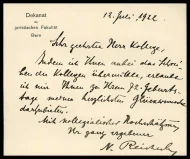 Dekanat
der
juristischen Fakultät
Bern
12. Juli 1922.
Sehr geehrter Herr Kollege.
Indem ich Ihnen anbei das Schrei-
ben der Kollegen übermittle, erlaube
ich mir Ihnen zu Ihrem 70. Geburts-
tage meine herzlichsten Glückwünsche
darzubieten.
Mit kollegialischer Hochschätzung
Ihr ganz ergebener
N. Reichesberg